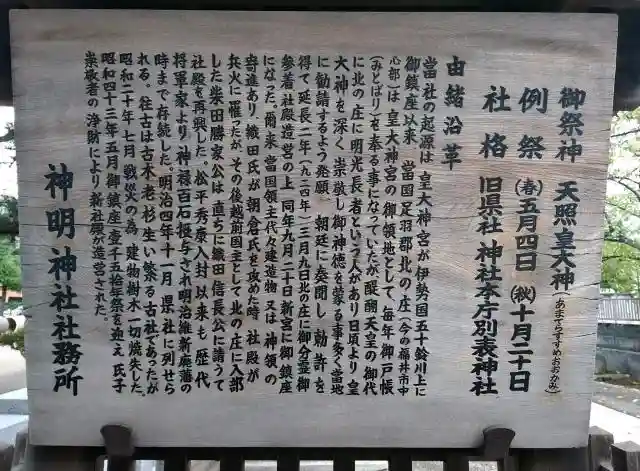 御祭神 天照皇大神(あまてらすすめおおかみ)
例祭 (春)五月四日 (秋)十月二十日
社格 旧県社 神社本庁別表神社
由緒沿革
当社の起源は 皇大神宮が伊勢国五十鈴川上に
御鎮座以来 当国足羽郡北の庄(今の福井市中
心部)は皇大神宮の御領地として、毎年御戸帳
(みとばり)を奉る事になっていたが醍醐天皇の御代
に北の庄に明光長者という人があり日頃より皇
大神を深く崇敬し御神徳を蒙る事多く当地
に勧請するよう発願 朝廷に奏聞し 勅許を
得て延長二年(九二四年)三月九日北の庄に御分霊御
参着社殿造営の上 同年九月二十日新宮に御鎮座
になった。爾来 当国領主代々建造物 又は 神領の
寄進あり、織田氏が 朝倉氏を攻めた時 社殿が
兵火に罹たが、その後越前国主として 北の庄に入部
した柴田勝家公は 直ちに織田信長公に請うて
社殿を再興した。松平秀康入封以来も 歴代
将軍家より神禄百石授与され明治維新廃藩の
時まで存続した。明治四年十一月 県社に列せら
れる。往古は古木老杉生い繁る古社であったが
昭和二十年七月戦災の為 建物樹木一切焼失した。
昭和四十三年五月御鎮座壱千五拾年祭を迎え 氏子
崇敬者の浄財により新社殿が造営された。
神明神社社務所